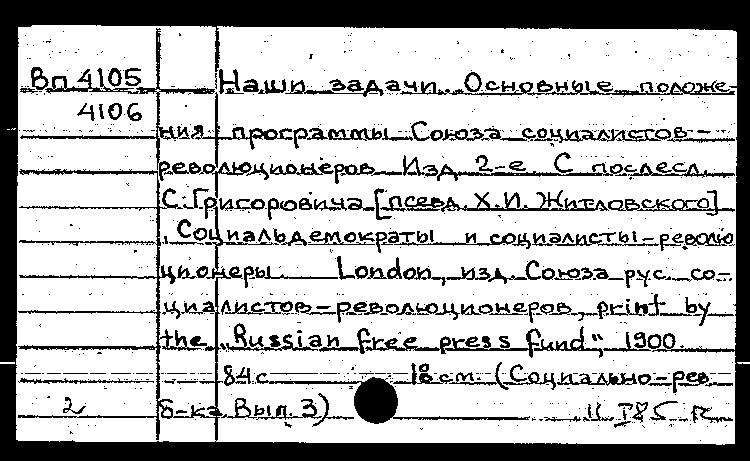 Вп.4105 Наши задачи. Основные положе-
4106
ния программы Союза социалистов-
революционеров. Изд. 2-е. С послесл.
С. Григоровича [псевд. Х.И. Житловского]
„Социальдемократы и социалисты-револю
ционеры. London, изд. Союза рус. со-
циалистов-революционеров, print by
the „Russian free press fund“, 1900.
84 с 18 см. (Социально-рев.
2 б-ка Вып. 3)